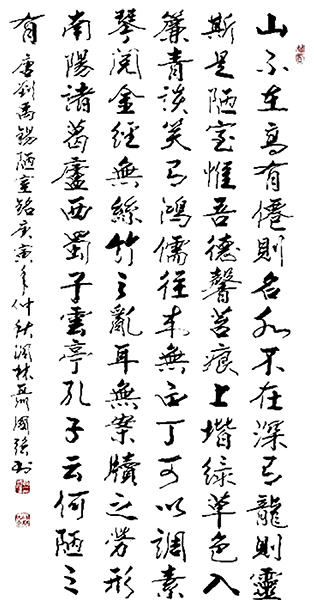 山不在高有僊則名水不在深有龍則靈
斯是陋室惟吾德馨苔痕上堦綠草色入
簾青談笑有鴻儒往來無白丁可以調素
琴閱金經無絲竹之亂耳無案牘之勞形
南陽諸葛廬西蜀子雲亭孔子云何陋之
有 唐劉禹錫陋室銘庚寅年仲秋潤林聶國強書